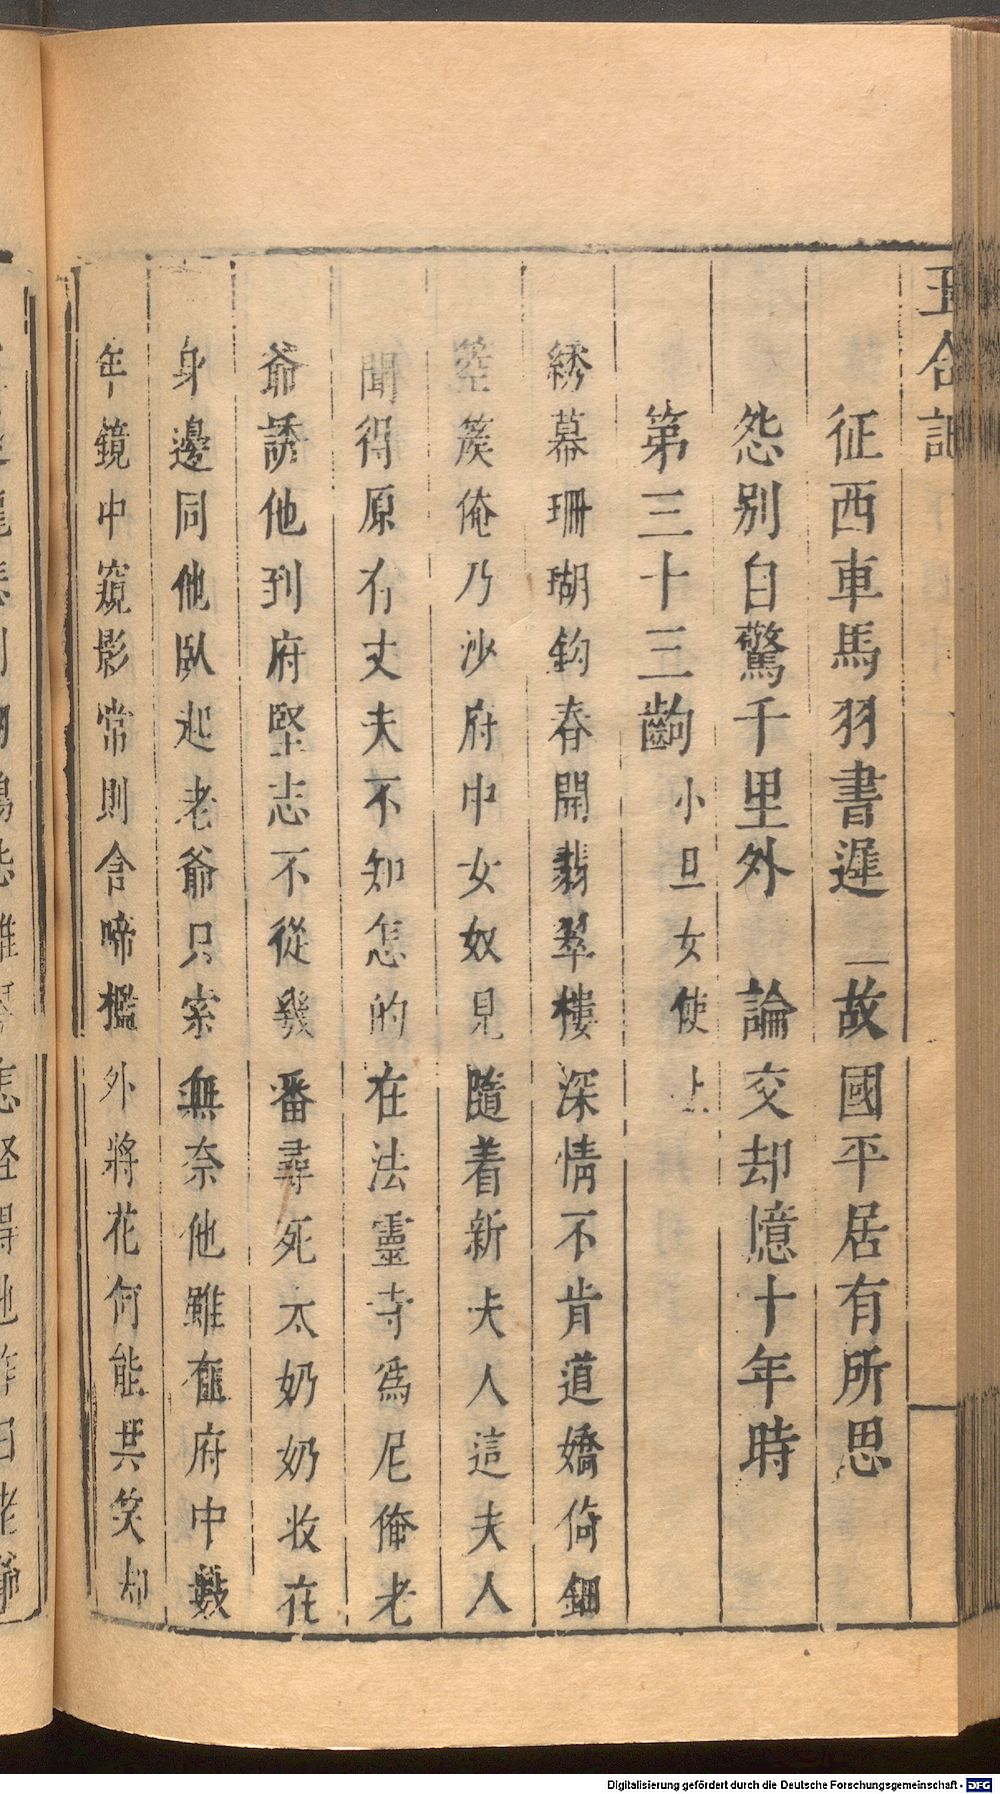 玉合記
征西車馬羽書遲　故國平居有所思
怨別自驚千里外　論交却憶十年時
第三十三齣 小旦女使上
綉幕珊瑚鈎春開翡翠樓深情不肯道嬌倚鈿
箜篌俺乃沙府中女奴見隨着新夫人這夫人
聞得原有丈夫不知怎的在法靈寺爲尼俺老
爺誘他到府堅志不從幾番尋死太奶奶收在
身邊同他臥起老爺只索無奈他雖在府中數
年鏡中窺影常則含啼檻外將花何能共笑却
Digitalisierung gefördert durch die Deutsche Forschungsgemeinschaft - DFG